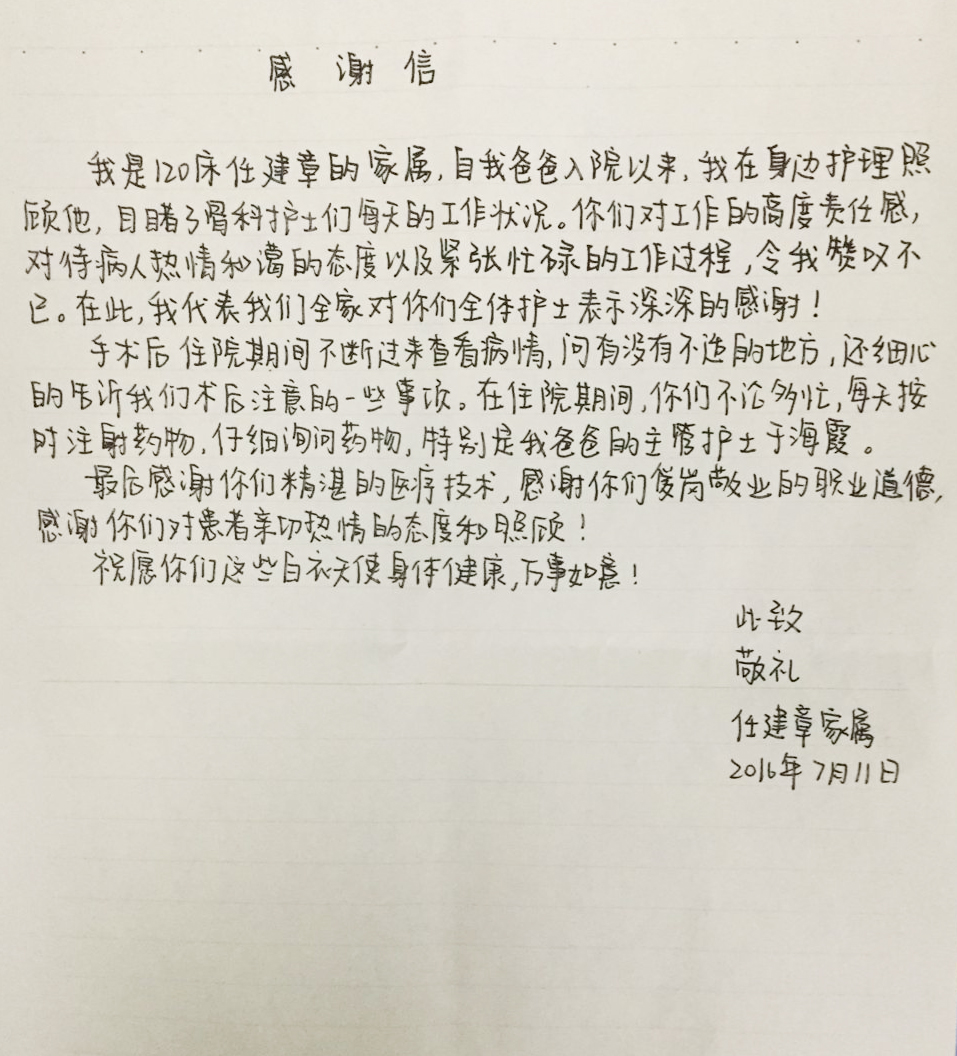 感谢信
我是120床任建章的家属,自我爸爸入院以来,我在身边护理照
顾他,目睹了骨科护士们每天的工作状况。你们对工作的高度责任感,
对待病人热情和蔼的态度以及紧张忙碌的工作过程,令我赞叹不
已。在此,我代表我们全家对你们全体护士表示深深的感谢!
手术后住院期间不断过来查看病情,问有没有不适的地方,还细心
的告诉我们术后注意的一些事项。在住院期间,你们不论多忙,每天按
时注射药物,仔细询问药物,特别是我爸爸的主管护士于海霞。
最后感谢你们精湛的医疗技术,感谢你们爱岗敬业的职业道德,
感谢你们对患者亲切热情的态度和照顾!
祝愿你们这些白衣天使身体健康,万事如意!
此致
敬礼
任建章家属
2016年7月11日